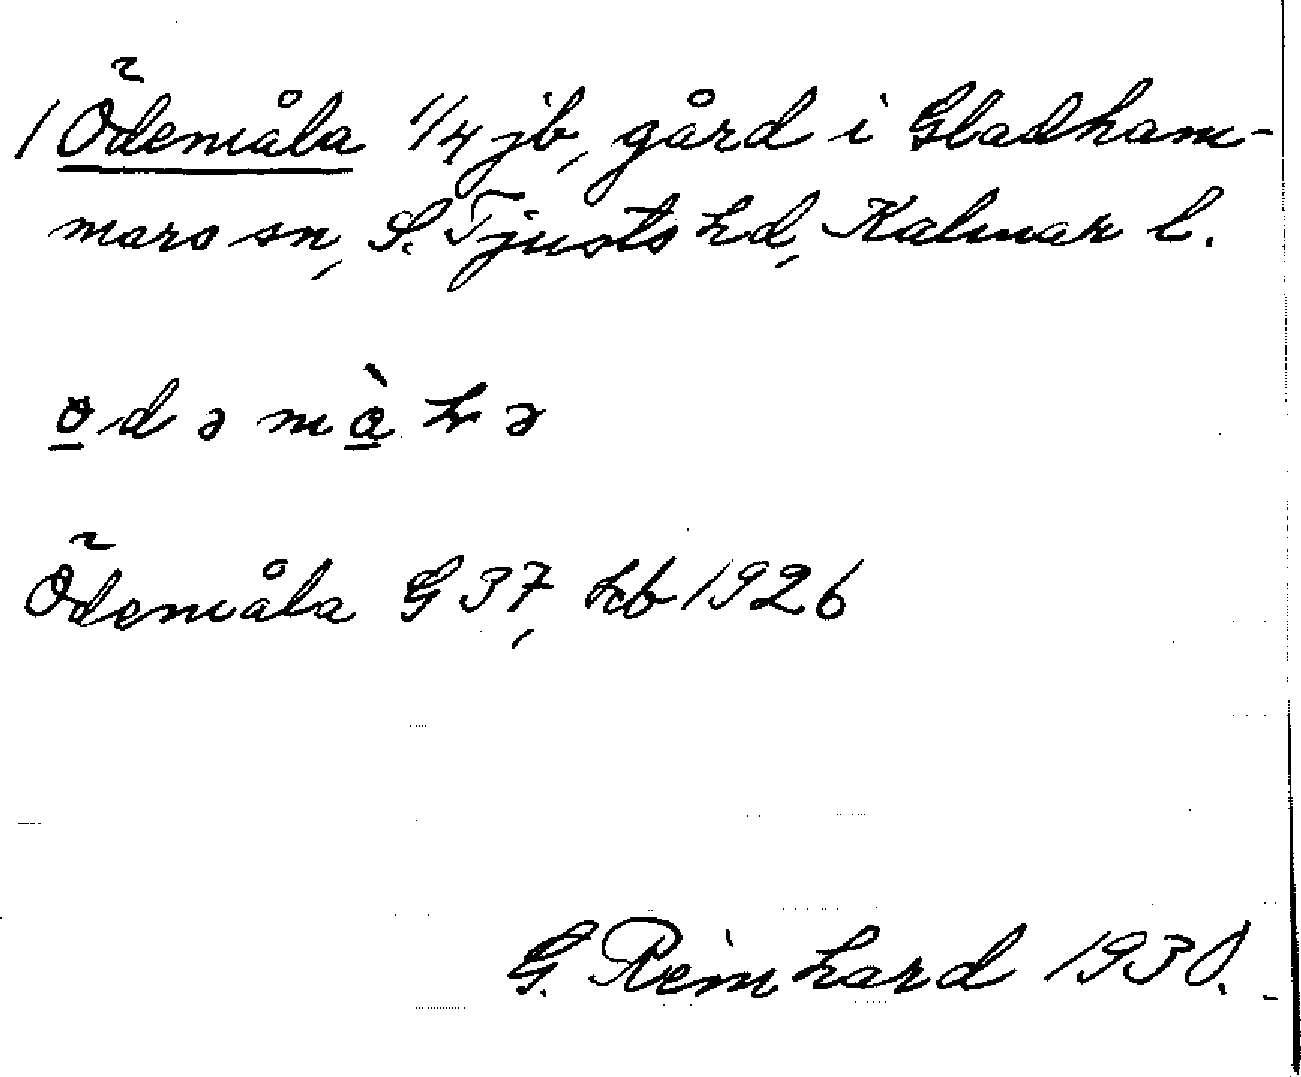 1 Ödemåla 1/4 jb, gård i Gladham-
mars sn, S. Tjusts hd, Kalmar l.
Ödemåla G 37, hb 1926
G. Reinhard 1930.